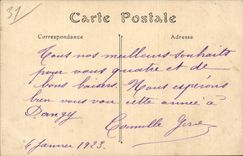 31
Carte Postale
Correspondance
Adresse
Tous nos meilleurs souhaits
pour vous quatre et de
bons baisers. Nous espérons
bien vous voir cette année à
Dangy
Camille
6 Janvier 1923.